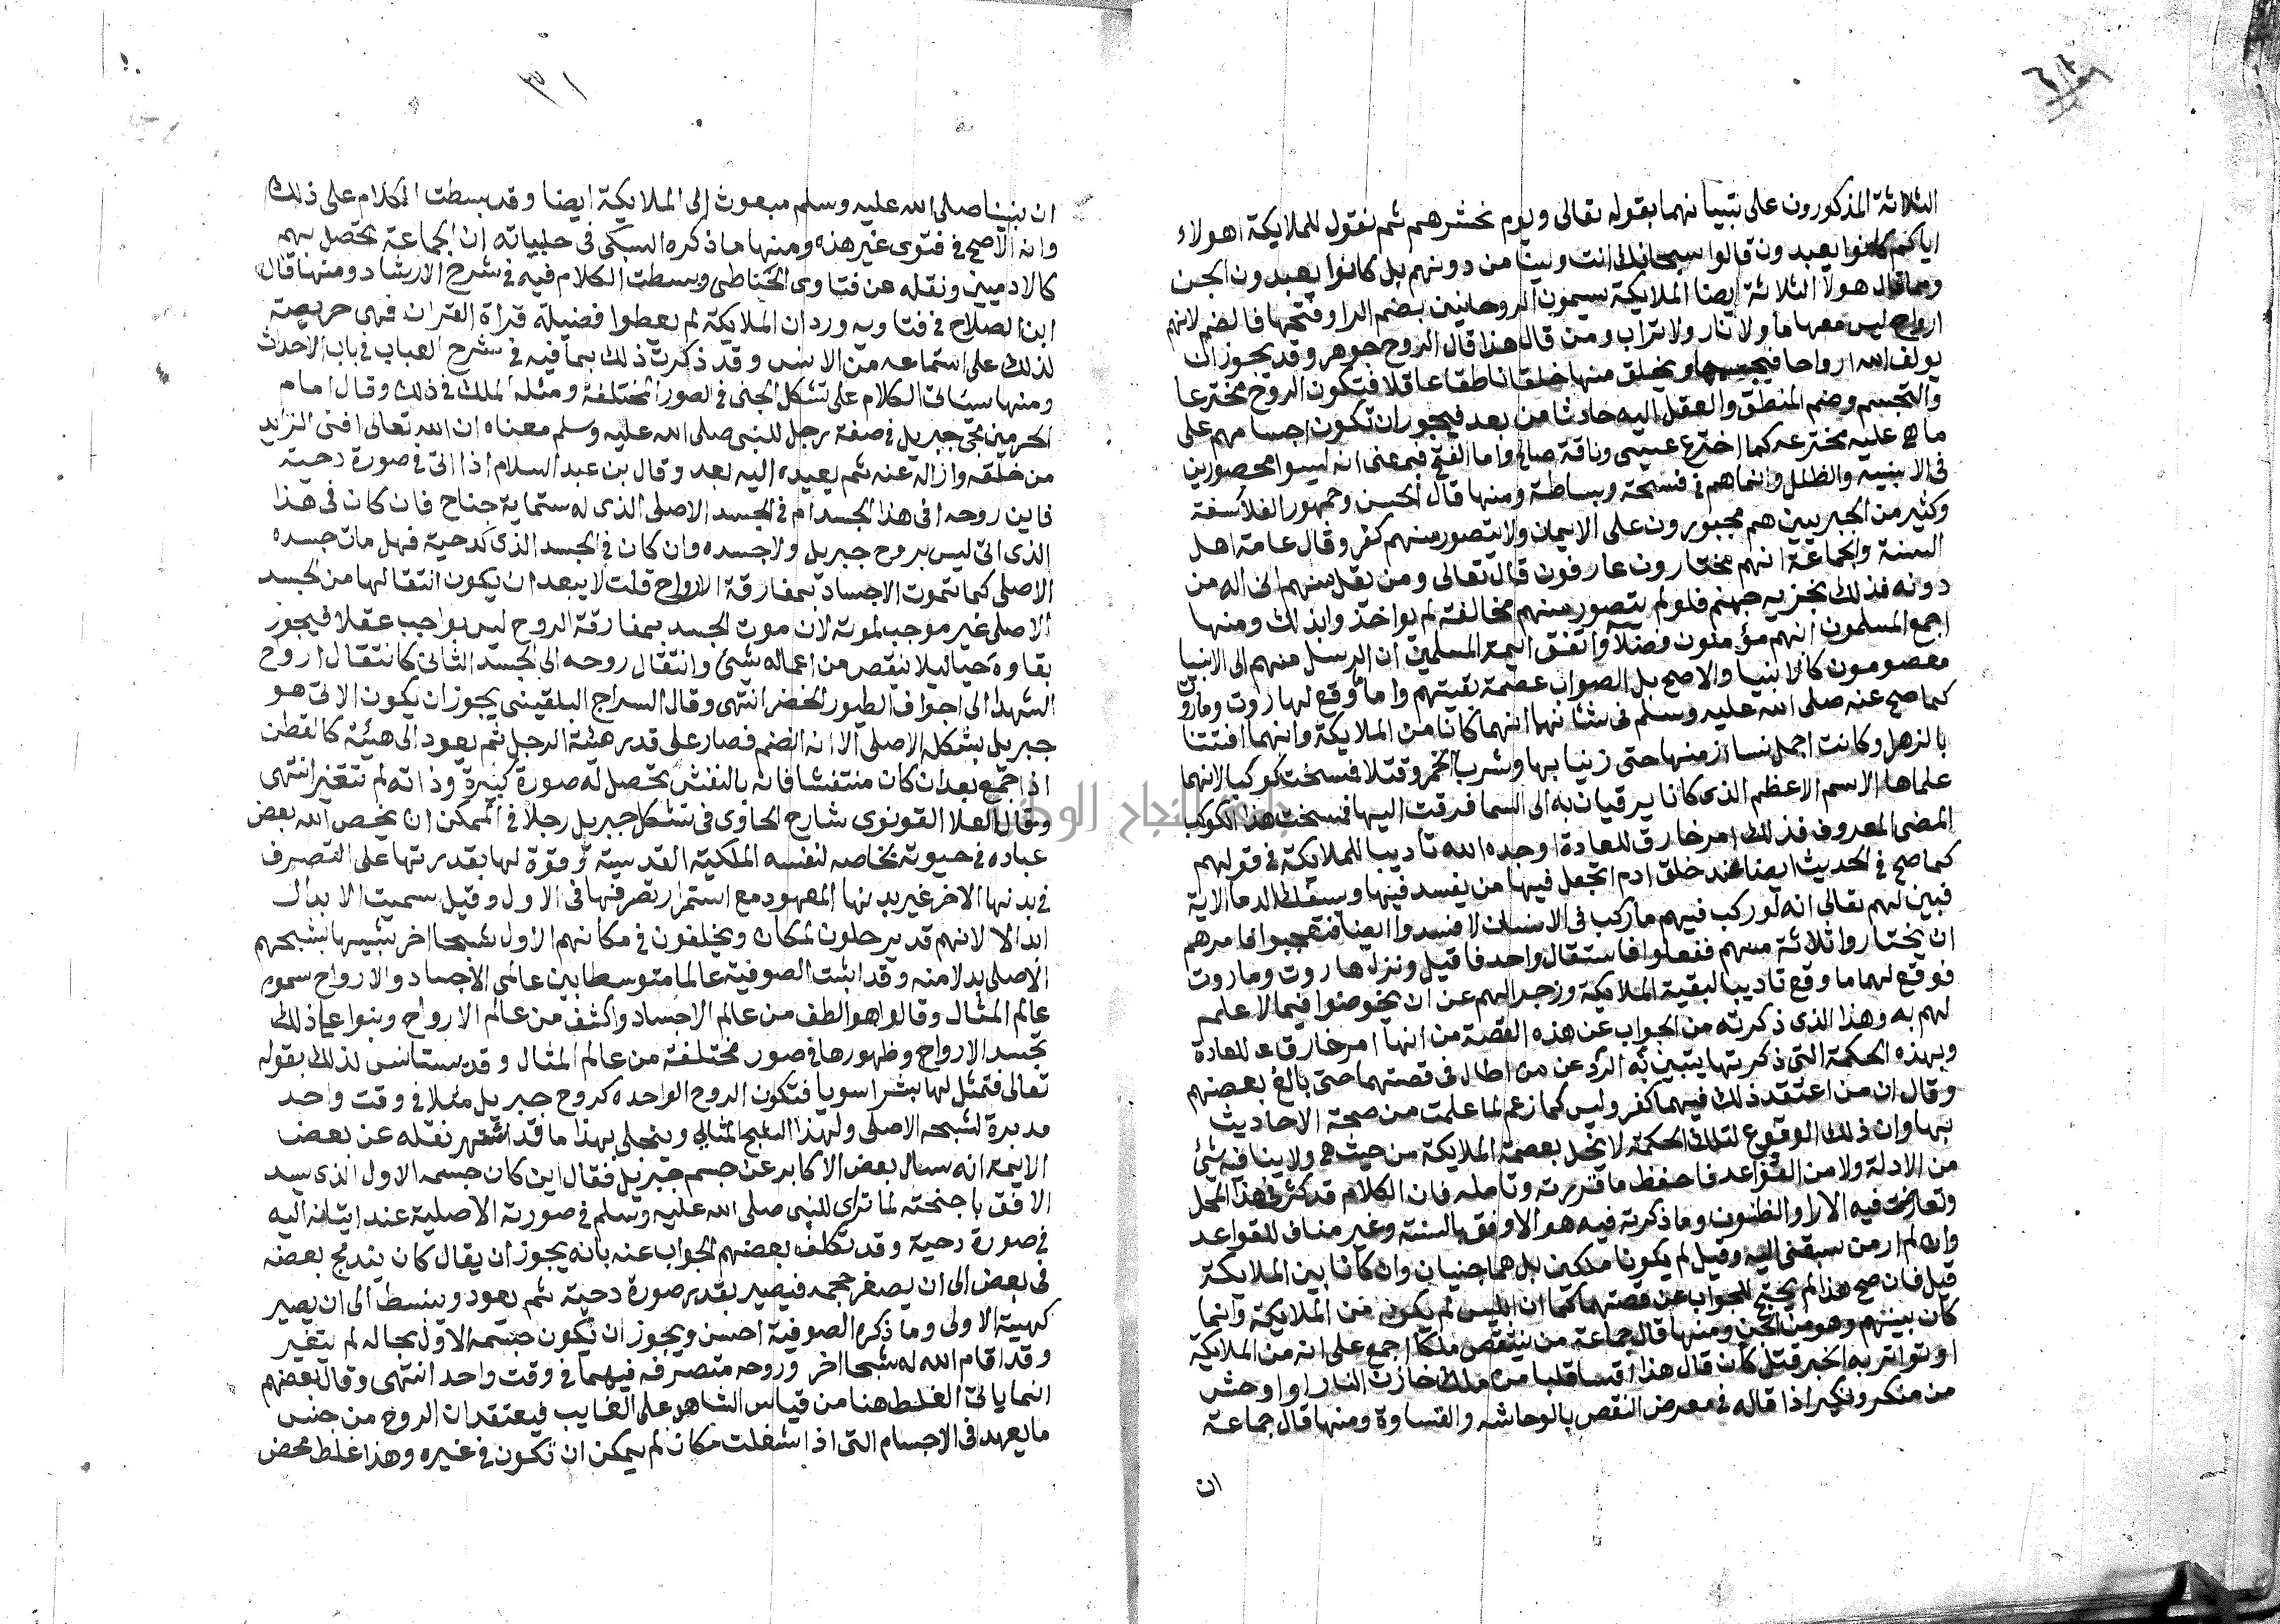 الثلاثة المذكورون على تبيانهما بقوله تعالى ويوم نحشرهم ثم نقول للملايكة اهولاء
اياكم كانوا يعبدون قالوا سبحانك انت ولينا من دونهم بل كانوا يعبدون الجن
ومما قال هولا الثلاثة ايضا الملايكة يسمون الروحانيين بضم الرا وفتحها فالضم لانهم
ارواح ليس معها ما ولا نار ولا تراب ومن قال هذا قال الروح جوهر وقد يجوز ان
يولف الله ارواحا فيجسمها ويخلق منها خلقا ناطقا عاقلا فتكون الروح مخترعا
والتجسم وضم المنطق والعقل اليه حادثا من بعد فيجوز ان تكون اجسامهم على
ما هي عليه مخترعه كما اخترع عيسى وناقة صالح واما الفتح فبمعنى انه ليسوا محصورين
في الابنية والظلل وانما هم في فسحة وبساطة ومنها قال الحسن وجمهور الفلاسفة
وكثير من الجبريين هم مجبورون على الايمان ولا يتصور منهم كفر وقال عامة اهل
السنة والجماعة انهم مختارون عارفون قال تعالى ومن يقل منهم انى اله من
دونه فذلك نجزيه جهنم فلو لم يتصور منهم مخالفة لم يواخذوا بذلك ومنها
اجمع المسلمون انهم مؤمنون فضلا واتفق ايمة المسلمين ان الرسل منهم الى الانبيا
معصومون كالانبيا والاصح بل الصواب عصمة بقيتهم واما ما وقع لهاروت وماروت
كما صح عنه صلى الله عليه وسلم في شانهما انهما كانا من الملايكة وانهما افتتنا
بالزهرا وكانت اجمل نسا زمنها حتى زنيا بها وشربا الخمر وقتلا فمسخت كوكبا لانهما
علماها الاسم الاعظم الذى كانا يرقيان به الى السما فرقت اليها فمسخت هذا الكوكب
المضى المعروف فذلك امر خارق للعادة اوجده الله تاديبا للملايكة في قولهم
كما صح في الحديث ايضا عند خلق ادم اتجعل فيها من يفسد فيها ويسفك الدما الاية
فبين لهم تعالى انه لو ركب فيهم ما ركب في الانسان لافسدوا ايضا فتعجبوا فامرهم
ان يختاروا ثلاثة منهم ففعلوا فاستقال واحد فاقيل ونزل هاروت وماروت
فوقع لهما ما وقع تاديبا لبقية الملايكة وزجرا لهم عن ان يخوضوا فيما لا علم
لهم به وهذا الذى ذكرته من الجواب عن هذه القصة من انها امر خارق للعادة
وبهذه الحكمة التى ذكرتها يتبين به الرد عن من اطال في قصتهما حتى بالغ بعضهم
وقال ان من اعتقد ذلك فيهما كفر وليس كما زعم لما علمت من صحة الاحاديث
بها وان ذلك الوقوع لتلك الحكمة لا يخل بعصمة الملايكة من حيث هي ولا ينافيه شئ
من الادلة ولا من القواعد فاحفظ ما قررته وتامله فان الكلام قد كثر في هذا المحل
وتعارضت فيه الارا والظنون وما ذكرته فيه هو الاوفق بالسنة وغير مناف للقواعد
وان لم ار من سبقني اليه وقيل لم يكونا ملكين بل هما جنيان وان كانا بين الملايكة
قيل فان صح هذا لم يحتج للجواب عن قصتهما كما ان ابليس لم يكون من الملايكة وانما
كان بينهم وهو من الجن ومنها قال جماعة من ينتقص ملكا اجمع على انه من الملايكة
او تواتر به الخبر قتل كان قال هذا اقسا قلبا من ملك خازن النار او اوحش
من منكر ونكير اذا قاله في معرض النقص بالوحاشه والقساوة ومنها قال جماعة
ان
٣١
ان نبينا صلى الله عليه وسلم مبعوث الى الملايكة ايضا وقد بسطت الكلام على ذلك
وانه الاصح في فتوى غير هذه ومنها ما ذكره السبكى فى حلبياته ان الجماعة تحصل بهم
كالادميين ونقله عن فتاوى الحناطى وبسطت الكلام فيه في شرح الارشاد ومنها قال
ابن الصلاح في فتاويه ورد ان الملايكة لم يعطوا فضيلة قراة القران فهى حريصة
لذلك على استماعه من الانس وقد ذكرت ذلك بما فيه في شرح العباب في باب الاحدث
ومنها سياتى الكلام على تشكل الجنى في الصور المختلفة ومثله الملك في ذلك وقال امام
الحرمين مجى جبريل في صفة رجل للنبى صلى الله عليه وسلم معناه ان الله تعالى افنى الزايد
من خلقه وازاله عنه ثم يعيده اليه بعد وقال بن عبد السلام اذا اتى في صورة دحية
فاين روحه افى هذا الجسد ام في الجسد الاصلى الذى له ستماية جناح فان كان فى هذا
الذى اتى ليس بروح جبريل ولا جسده وان كان في الجسد الذى كدحية فهل مات جسده
الاصلى كما تموت الاجساد بمفارقة الارواح قلت لا يبعد ان يكون انتقالها من الجسد
الاصلى غير موجب لموته لان موت الجسد بمفارقة الروح ليس بواجب عقلا فيجوز
بقاوه حيا ليلا ينقص من اعماله شئ وانتقال روحه الى الجسد الثانى كانتقال ارواح
الشهدا الى اجواف الطيور الخضر انتهى وقال السراج البلقينى يجوز ان يكون الاتى هو
جبريل بشكله الاصلى الا انه انضم فصار على قدر هيئة الرجل ثم يعود الى هيئة كالقطن
اذا جمع بعد ان كان منتفشا فانه بالنفش تحصل له صورة كبيرة وذاته لم تتغير انتهى
وقال العلا القونوى شارح الحاوى فى تشكل جبريل رجلا في الممكن ان يخص الله بعض
عباده في حيوته بخاصه لنفسه الملكية القدسية وقوة لها بقدرتها على التصرف
في بدنها الاخر غير بدنها المعهود مع استمرار تصرفها فى الاول وقيل سميت الابدال
ابدالا لانهم قد يرحلون لمكان ويخلفون في مكانهم الاول شبحا اخر شبيها بشبحهم
الاصلى بدلا منه وقد اثبت الصوفية عالما متوسطا بين عالمى الاجساد والارواح سموه
عالم المثال وقالوا هو الطف من عالم الاجساد واكثف من عالم الارواح وبنوا على ذلك
تجسد الارواح وظهورها في صور مختلفة من عالم المثال وقد يستانس لذلك بقوله
تعالى فتمثل لها بشرا سويا فتكون الروح الواحده كروح جبريل مثلا في وقت واحد
مدبرة لشبحه الاصلى ولهذا الشبح المثالى وينجلى بهذا ما قد اشتهر نقله عن بعض
الايمة انه سال بعض الاكابر عن جسم جبريل فقال اين كان جسمه الاول الذى سد
الافق باجنحته لما تراى للنبى صلى الله عليه وسلم في صورته الاصلية عند اتيانه اليه
في صورة دحية وقد تكلف بعضهم الجواب عنه بانه يجوز ان يقال كان يندمج بعضه
فى بعض الى ان يصغر حجمه فيصير بقدر صورة دحية ثم يعود وينبسط الى ان يصير
كهيية الاولى وما ذكره الصوفية احسن ويجوز ان يكون جسمه الاول بحاله لم يتغير
وقد اقام الله له شبحا اخر وروحه متصرفه فيهما في وقت واحد انتهى وقال بعضهم
انما ياتى الغلط هنا من قياس الشاهد على الغايب فيعتقد ان الروح من جنس
ما يعهد في الاجسام التى اذا شغلت مكان لم يمكن ان تكون في غيره وهذا غلط محض